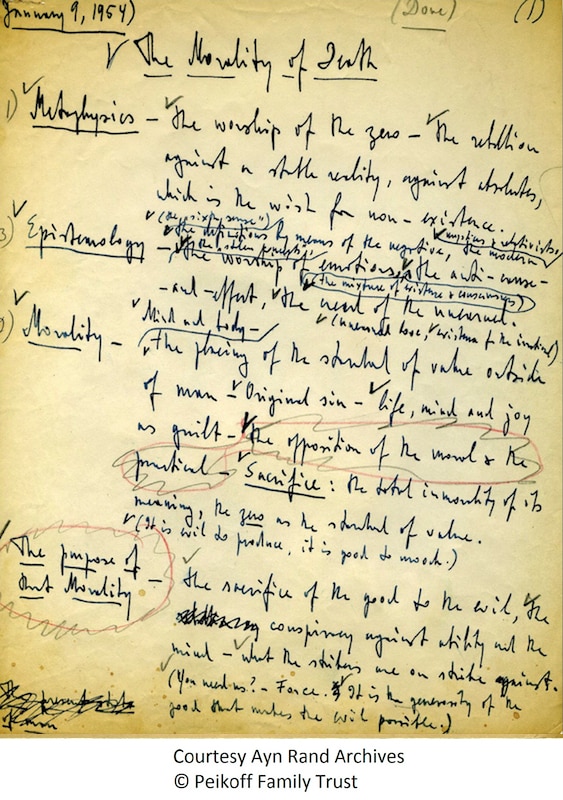 January 9, 1954)
(Done)
(1)
The Morality of Death
1) Metaphysics – The worship of the zero – the rebellion
against a stable reality, against absolutes,
which is the wish for non-existence.
("the sixth sense")
the definitions by means of the negative,
the modern
the "stolen concepts",
3) Epistemology – the worship of emotions, the anti-cause-
(the mixture of existence & consciousness)
-and-effect, the need of the unearned.
(unearned love,
Mind and body –
2) Morality – the placing of the standard of value outside
of man – Original sin – life, mind and joy
as guilt – the opposition of the moral & the
practical – Sacrifice: the total immorality of its
meaning, the zero as the standard of value.
(It is evil to produce, it is good to mooch.)
The purpose of
that Morality –
the sacrifice of the good to the evil, the
conspiracy against ability and the
mind – what the strikers are on strike against.
(You need us? – Force. It is the generosity of the
good that makes the evil possible.)
Courtesy Ayn Rand Archives
© Peikoff Family Trust